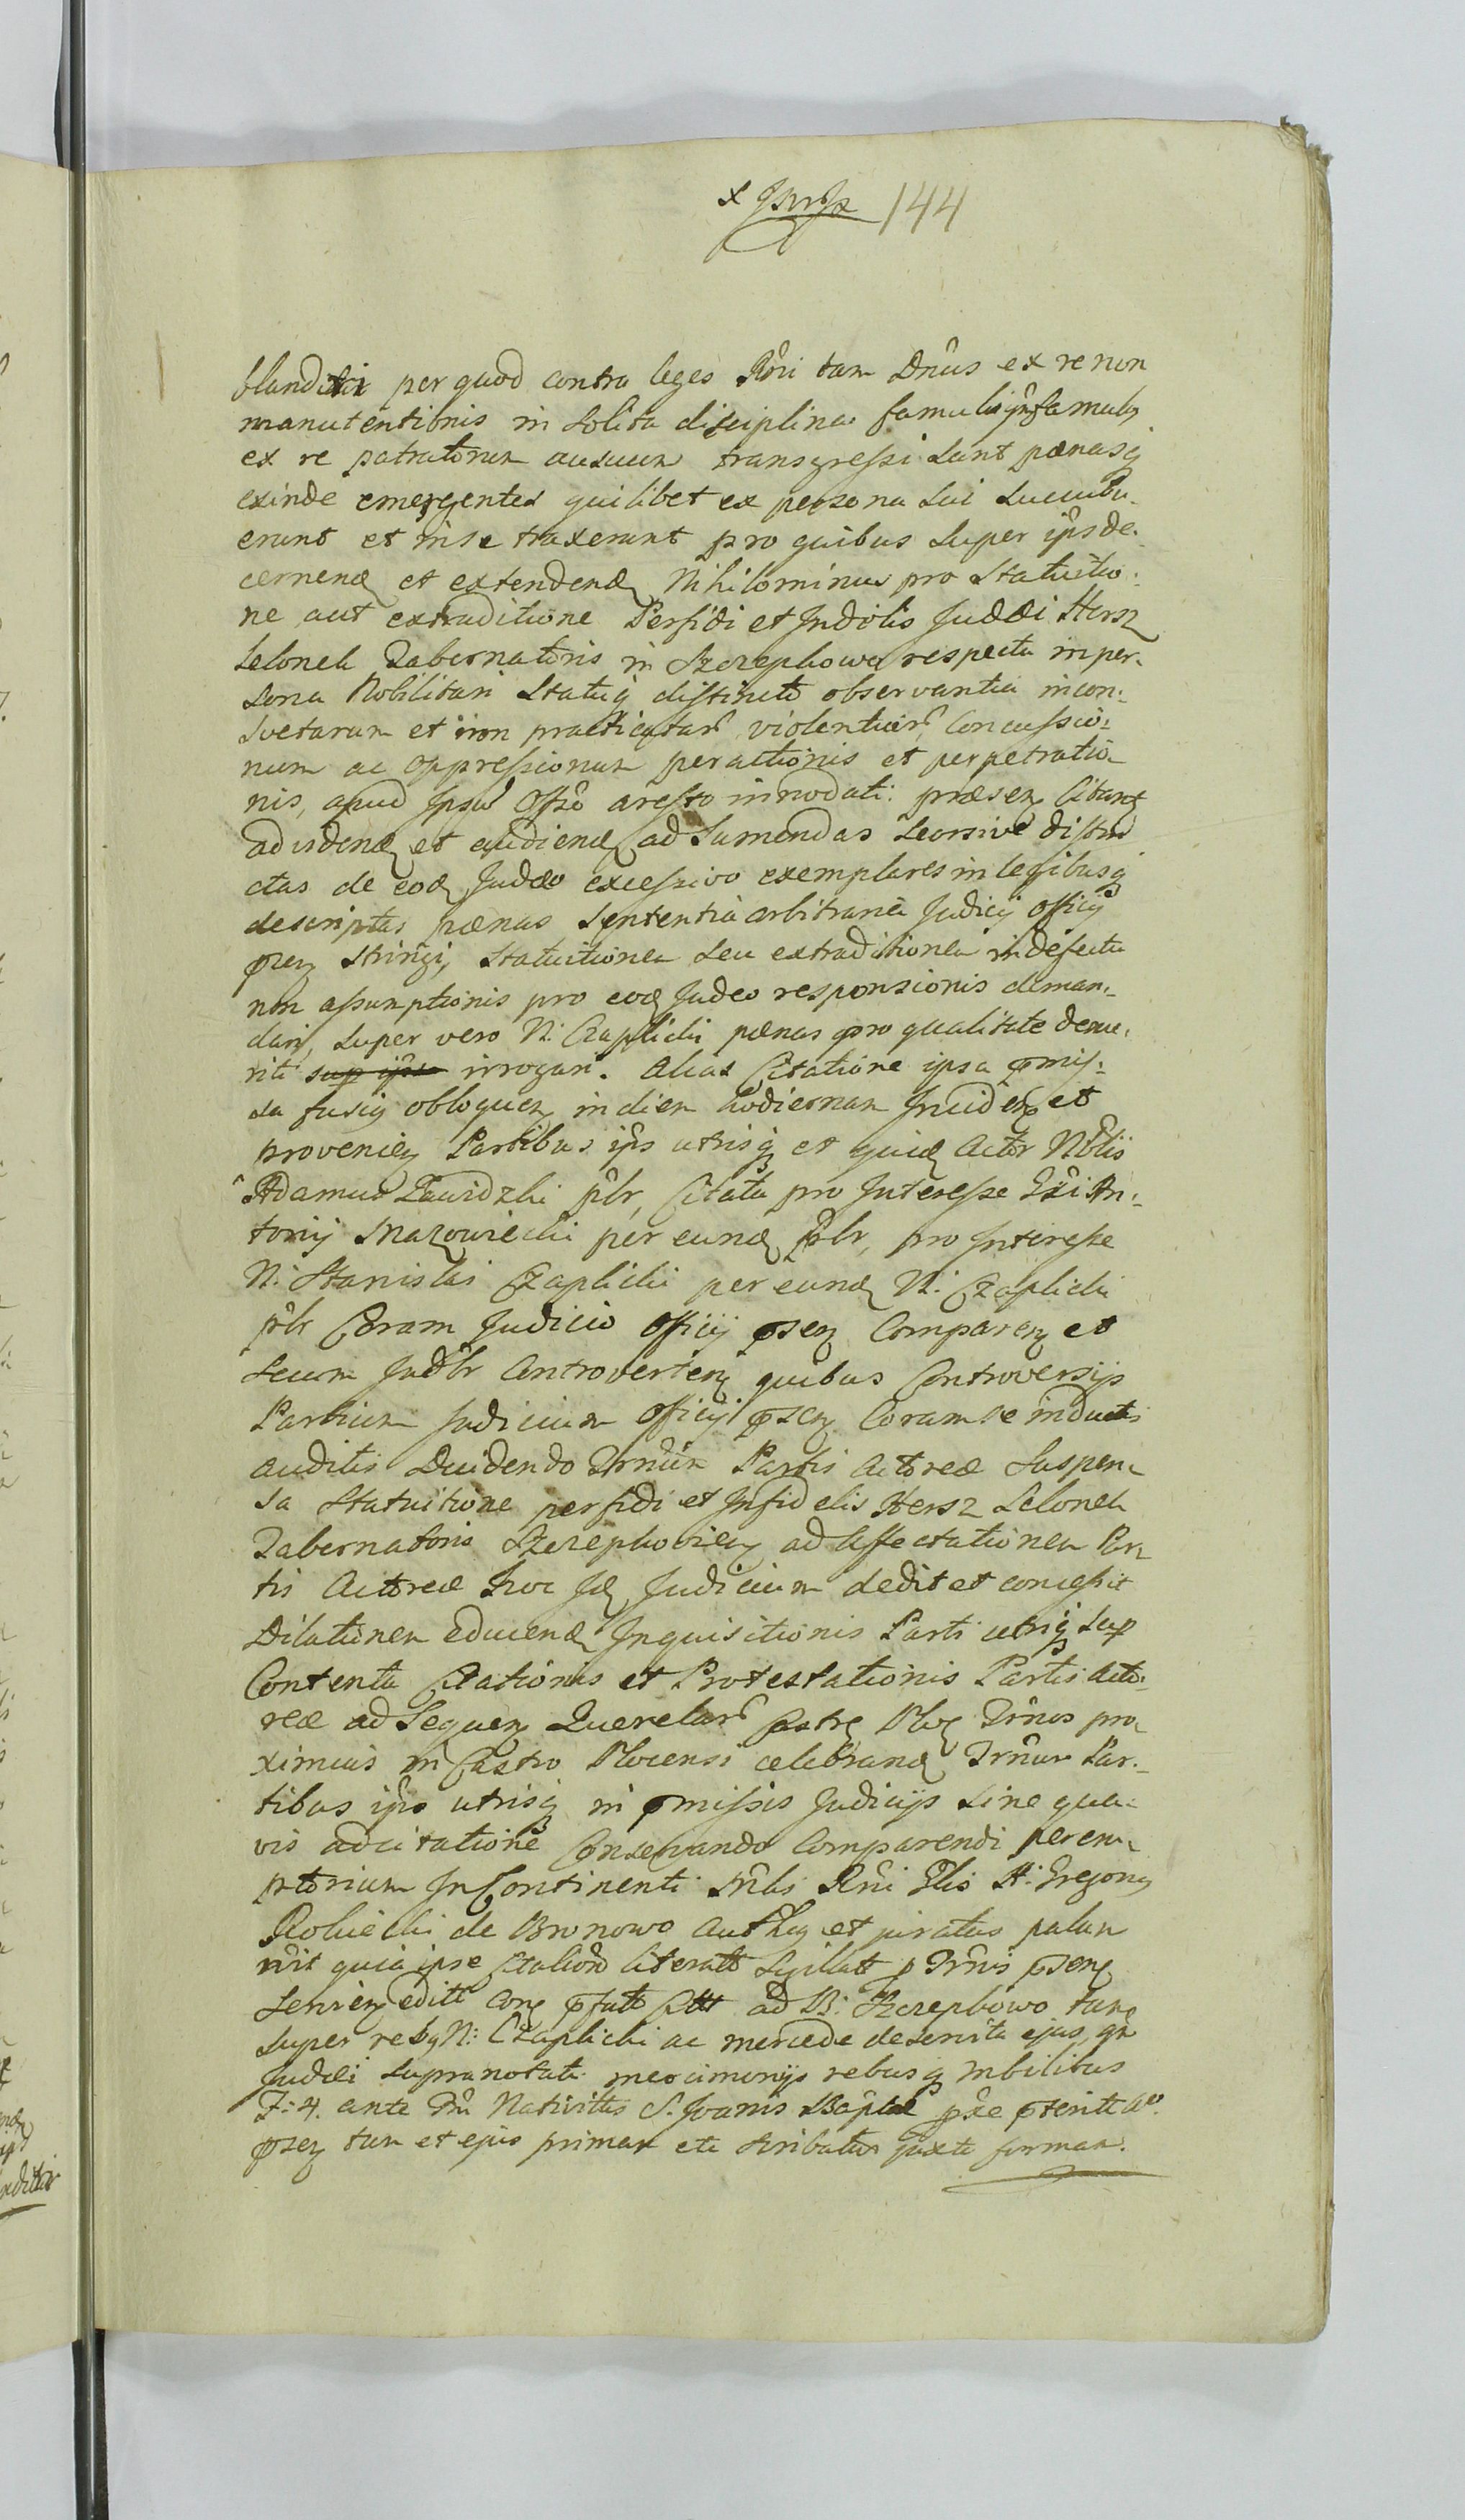 144
blanditii per quod contra leges Rni tam Dnus ex re non
manutentionis in solita disciplina famulij qm famulg
ex re patratorum ausuum transgressi sunt pœnasq
exinde emergentes quilibet ex persona sui succubu-
erunt et in se traxerunt pro quibus super ipsde-
cernend et extendend Nihilominus pro Statuitio-
ne aut extraditione Perfidi et Judæi Hersz
Lelonek Tabernatoris in Szczepkowo respectu in per-
sona Nobilitari Statuq distincto observantia incon-
svetarum et non practicatar violentiar Concussio-
num ac oppressionum peractionis et perpetratio-
nis, apud Ipsu Offò aresto innodati præsen Citant
ad vidend et audiend ad sumendas seorsive distin
ctas de eod Judæo excessivo exemplares in legibusq
descriptas pœnas Sententia arbitraria Judicij Officij
prn stringi, Statuitionem seu extraditionem in defectu
non assumptionis pro eod Judeo responsionis deman-
dari, super vero N: Czaplicki pœnas pro qualitate deme-
riti irrogari. Alias Citatione ipsa pmis-
sa fusiq obloquen in diem hodiernam Inciden et
provenien Partibus ips utrisq et quid Actor Nblis
Adamus Zawidzki pslr, Citata pro Interesse Gsi An-
tonij Mazowiecki per eund pslr, pro Interesse
N: Stanislai Czaplicki per eund N: Czaplicki
pslr Coram Judicio Officij psen Comparen et
secum Judlr Controverten quibus Controversijs
Partium Judicium Officij psen Coram se inductis
auditis Decidendo Trnum Partis Actoreæ Suspen-
sa Statuitione perfidi et Infidelis Hersz Lelonek
Tabernatoris Szczepkovien ad affectationem Par-
tis Actoreæ hoc Id Judicium dedit et concessit
Dilationem educend Inquisitionis Parti utriq sup
Contenta Citationis et Protestationis Partis Acto-
reæ ad Sequen Querelar Castr Ploc Trnos pro-
ximius in Castro Plocensi celebrand Trnum Par-
tibus ips utrisq in pmissis Judicijs sine qua-
vis adcitatione Conservando Comparendi perem-
ptorium In Continenti Mlis Rni Glis H: Gregorius
Robiecki de Bronowo Auth et juratus palam
rnit quia ipse Citation literatt Sigillatt p Trnis psen
Servien editt Con pfatt Citt ad B: Szczepkowo tam
super rebq N: Czaplicki ac mercede deservita ejus, qm
Judæi supranotati mecimonijs rebusq mbilibus
F: 4. ante Fm Nativittis S. Joanis Bapttæ pxe pteritt Ao
psen tum et ejus primam etc scribatur juxta formam.